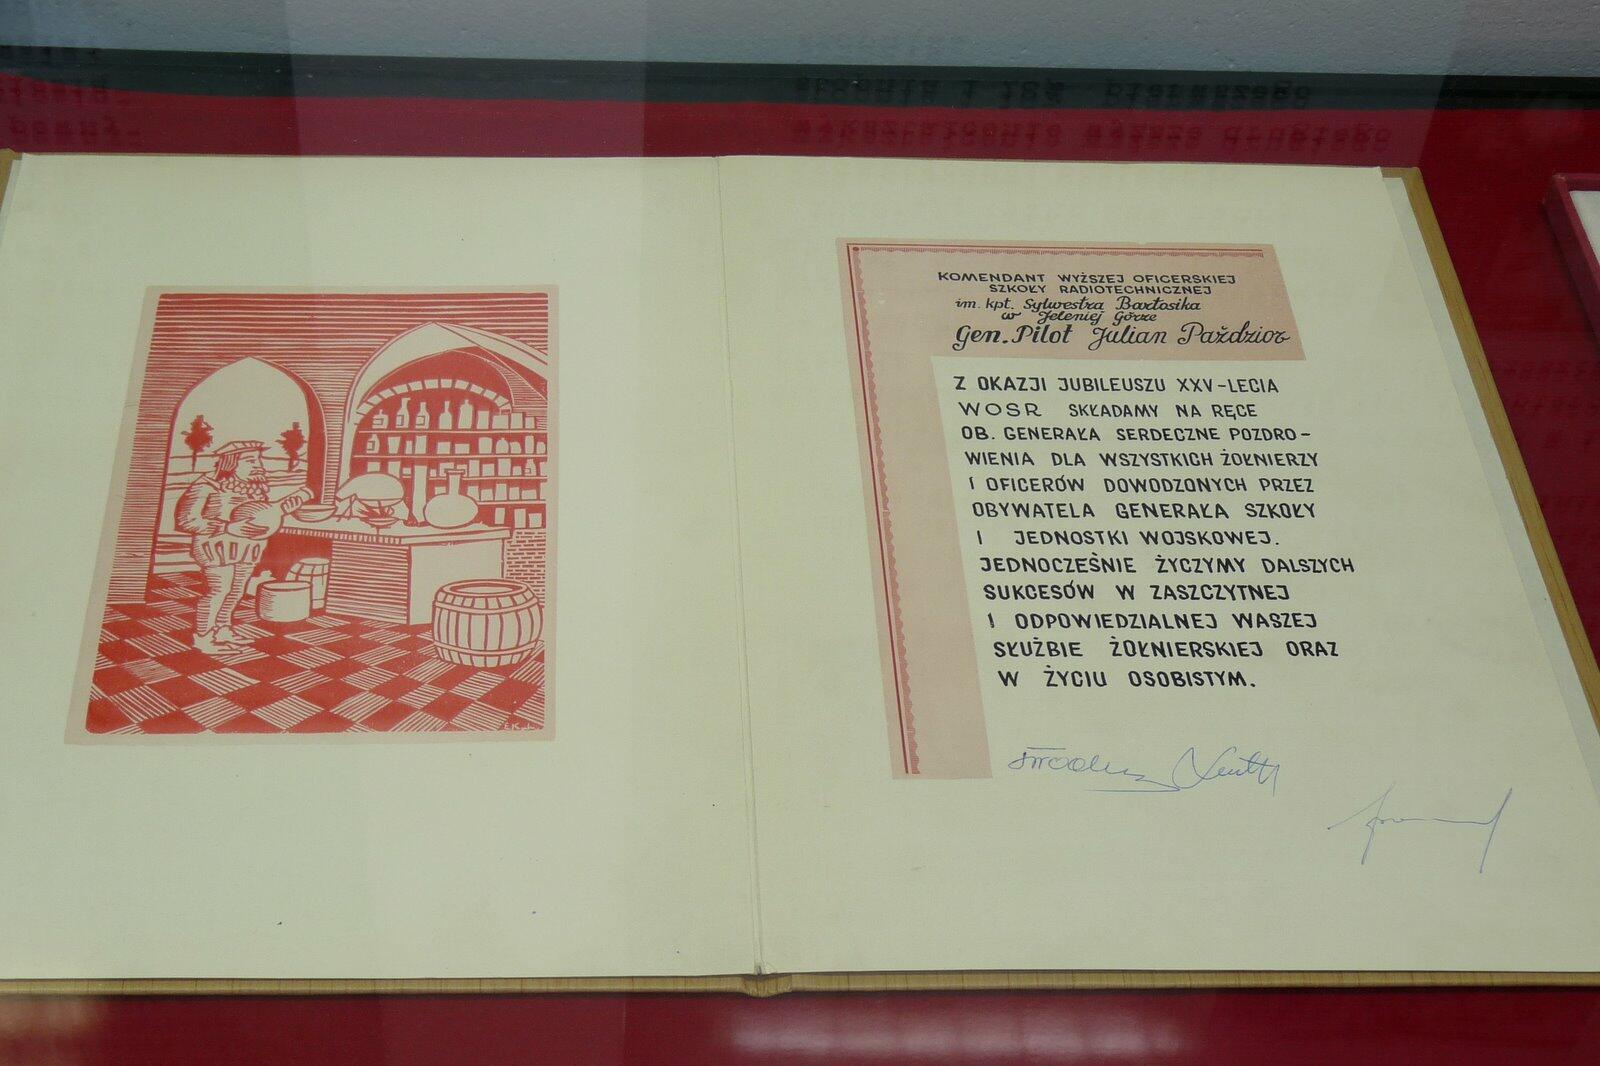 KOMENDANT WYŻSZEJ OFICERSKIEJ
SZKOŁY RADIOTECHNICZNEJ
im. kpt. Sylwestra Bartosika
w Jeleniej Górze
Gen. Pilot Julian Paździor
Z OKAZJI JUBILEUSZU XXV-LECIA
WOSR SKŁADAMY NA RĘCE
OB. GENERAŁA SERDECZNE POZDRO-
WIENIA DLA WSZYSTKICH ŻOŁNIERZY
I OFICERÓW DOWODZONYCH PRZEZ
OBYWATELA GENERAŁA SZKOŁY
I JEDNOSTKI WOJSKOWEJ.
JEDNOCZEŚNIE ŻYCZYMY DALSZYCH
SUKCESÓW W ZASZCZYTNEJ
I ODPOWIEDZIALNEJ WASZEJ
SŁUŻBIE ŻOŁNIERSKIEJ ORAZ
W ŻYCIU OSOBISTYM.